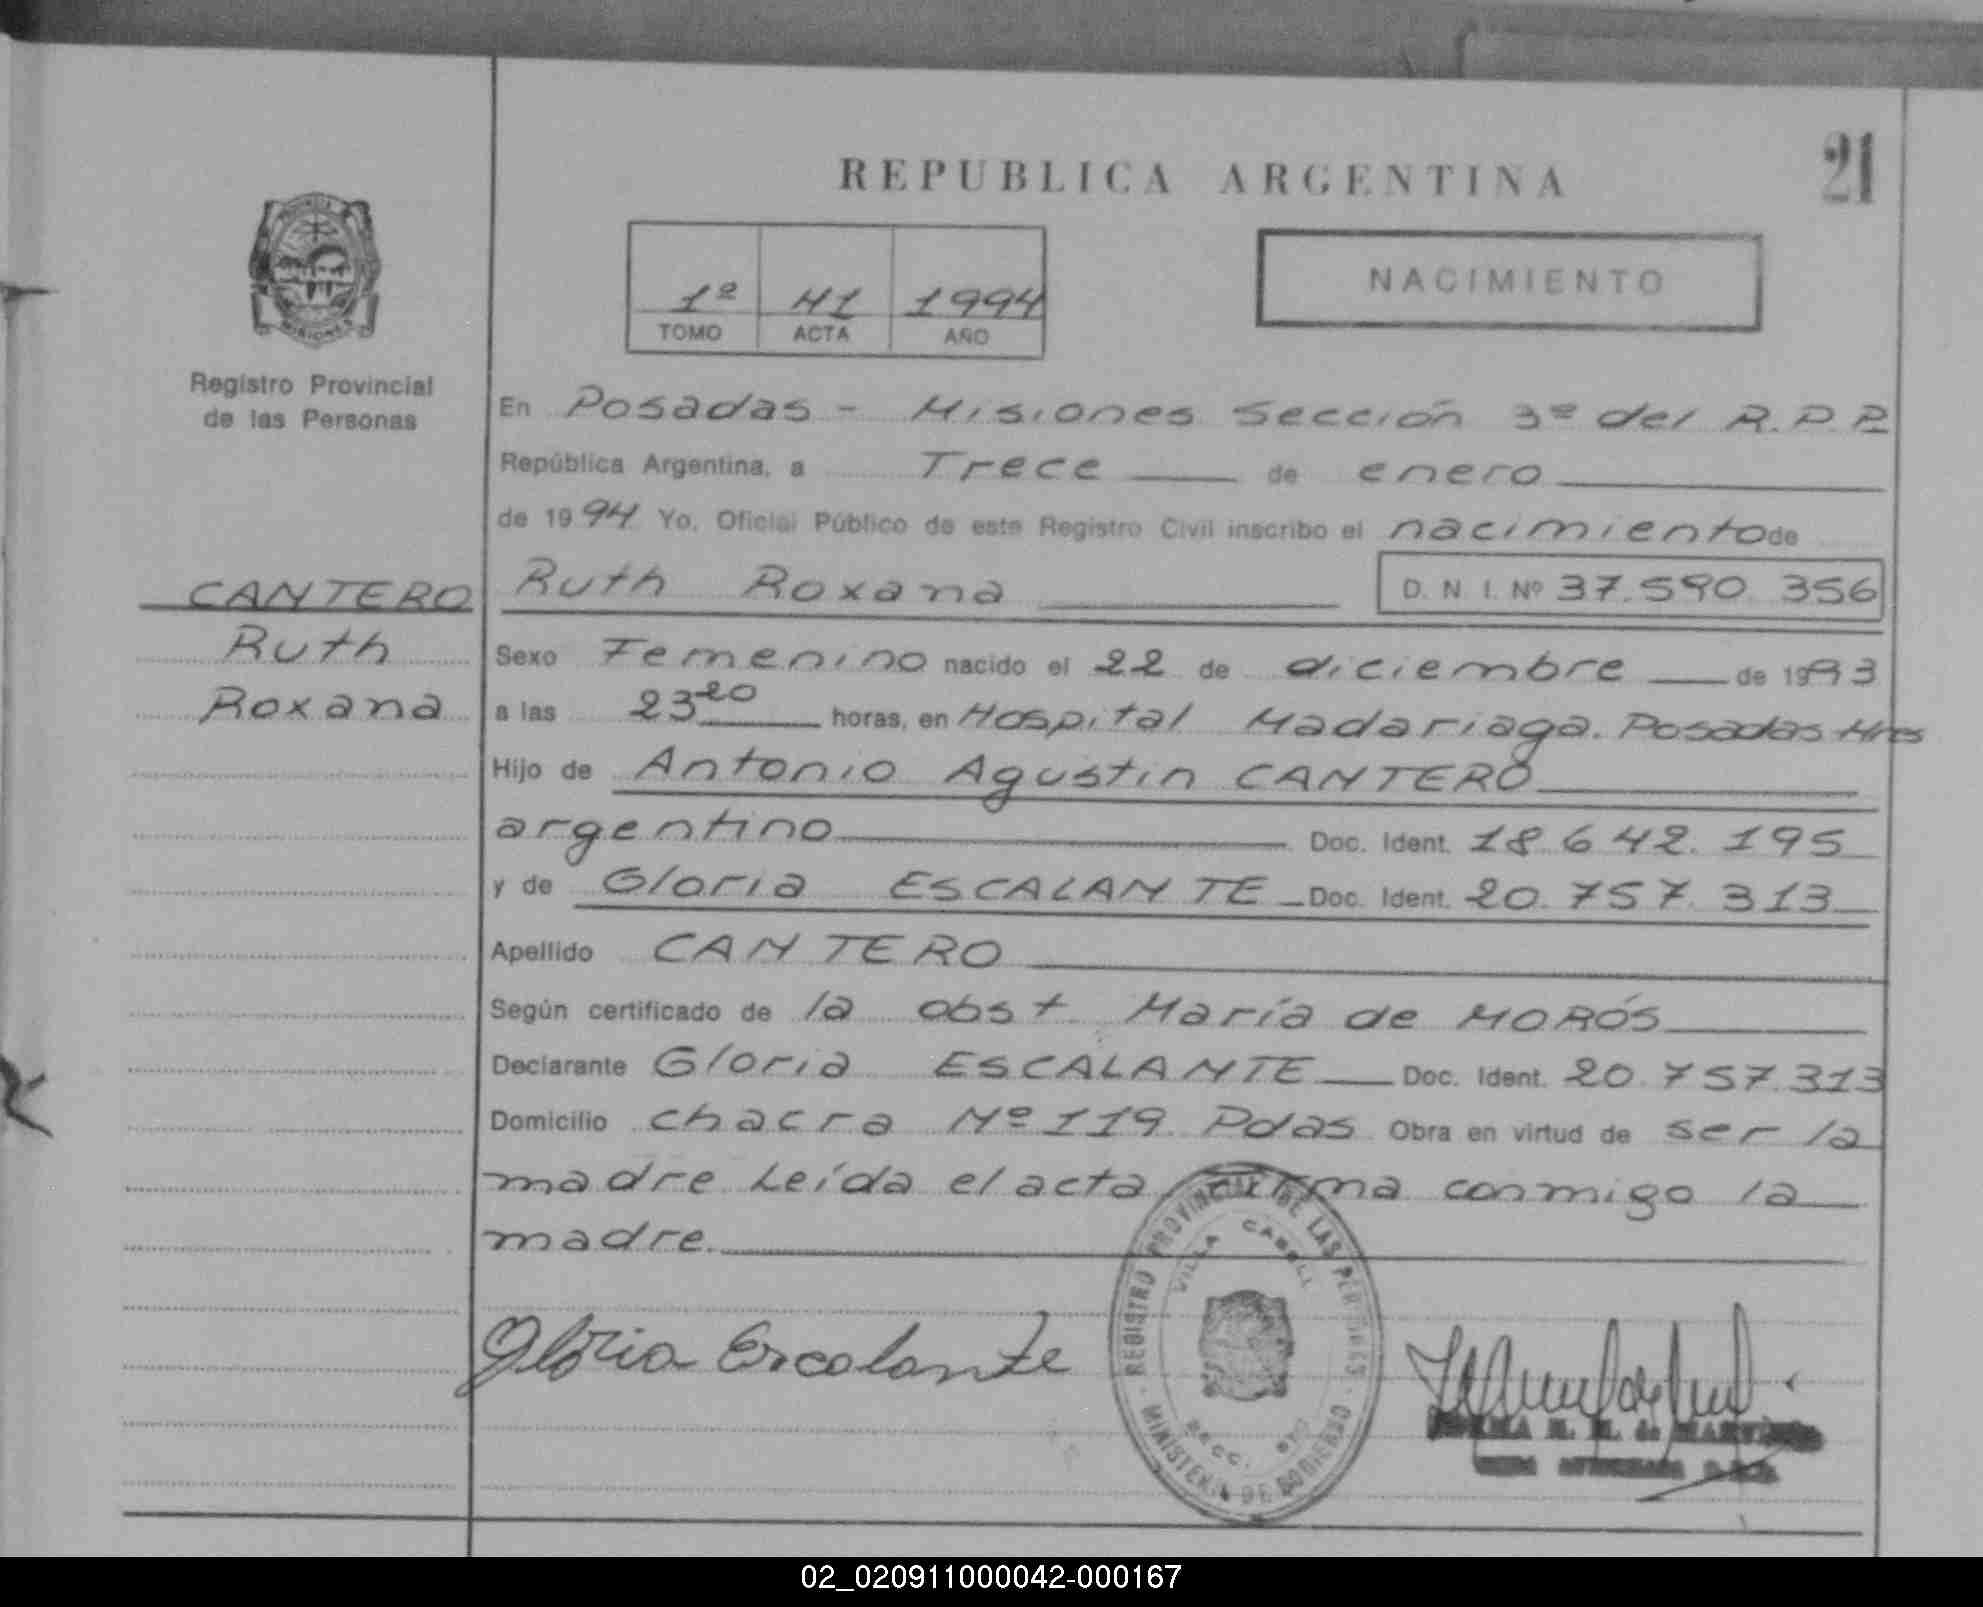 21
REPUBLICA ARGENTINA
NACIMIENTO
1º 41 1994
TOMO ACTA AÑO
PROVINCIA
MISIONES
Registro Provincial
de las Personas
En Posadas - Misiones Sección 3º del R.P.P.
República Argentina, a Trece de enero
de 1994 Yo, Oficial Público de este Registro Civil inscribo el nacimiento de
CANTERO
Ruth
Roxana
Ruth Roxana D. N. I. Nº 37.590.356
Sexo Femenino nacido el 22 de diciembre de 1993
a las 23 20 horas, en Hospital Madariaga. Posadas Mnes
Hijo de Antonio Agustin CANTERO
argentino Doc. Ident. 18.642.195
y de Gloria ESCALANTE Doc. Ident. 20.757.313
Apellido CANTERO
Según certificado de la obst. María de MORÓS
Declarante Gloria ESCALANTE Doc. Ident. 20.757.313
Domicilio chacra Nº 119 Pdas Obra en virtud de ser la
madre Leída el acta firma conmigo la
madre.
Gloria Escalante
REGISTRO PROVINCIAL DE LAS PERSONAS
VILLA CABELL
SECC.
MINISTERIO DE GOBIERNO
02_020911000042-000167